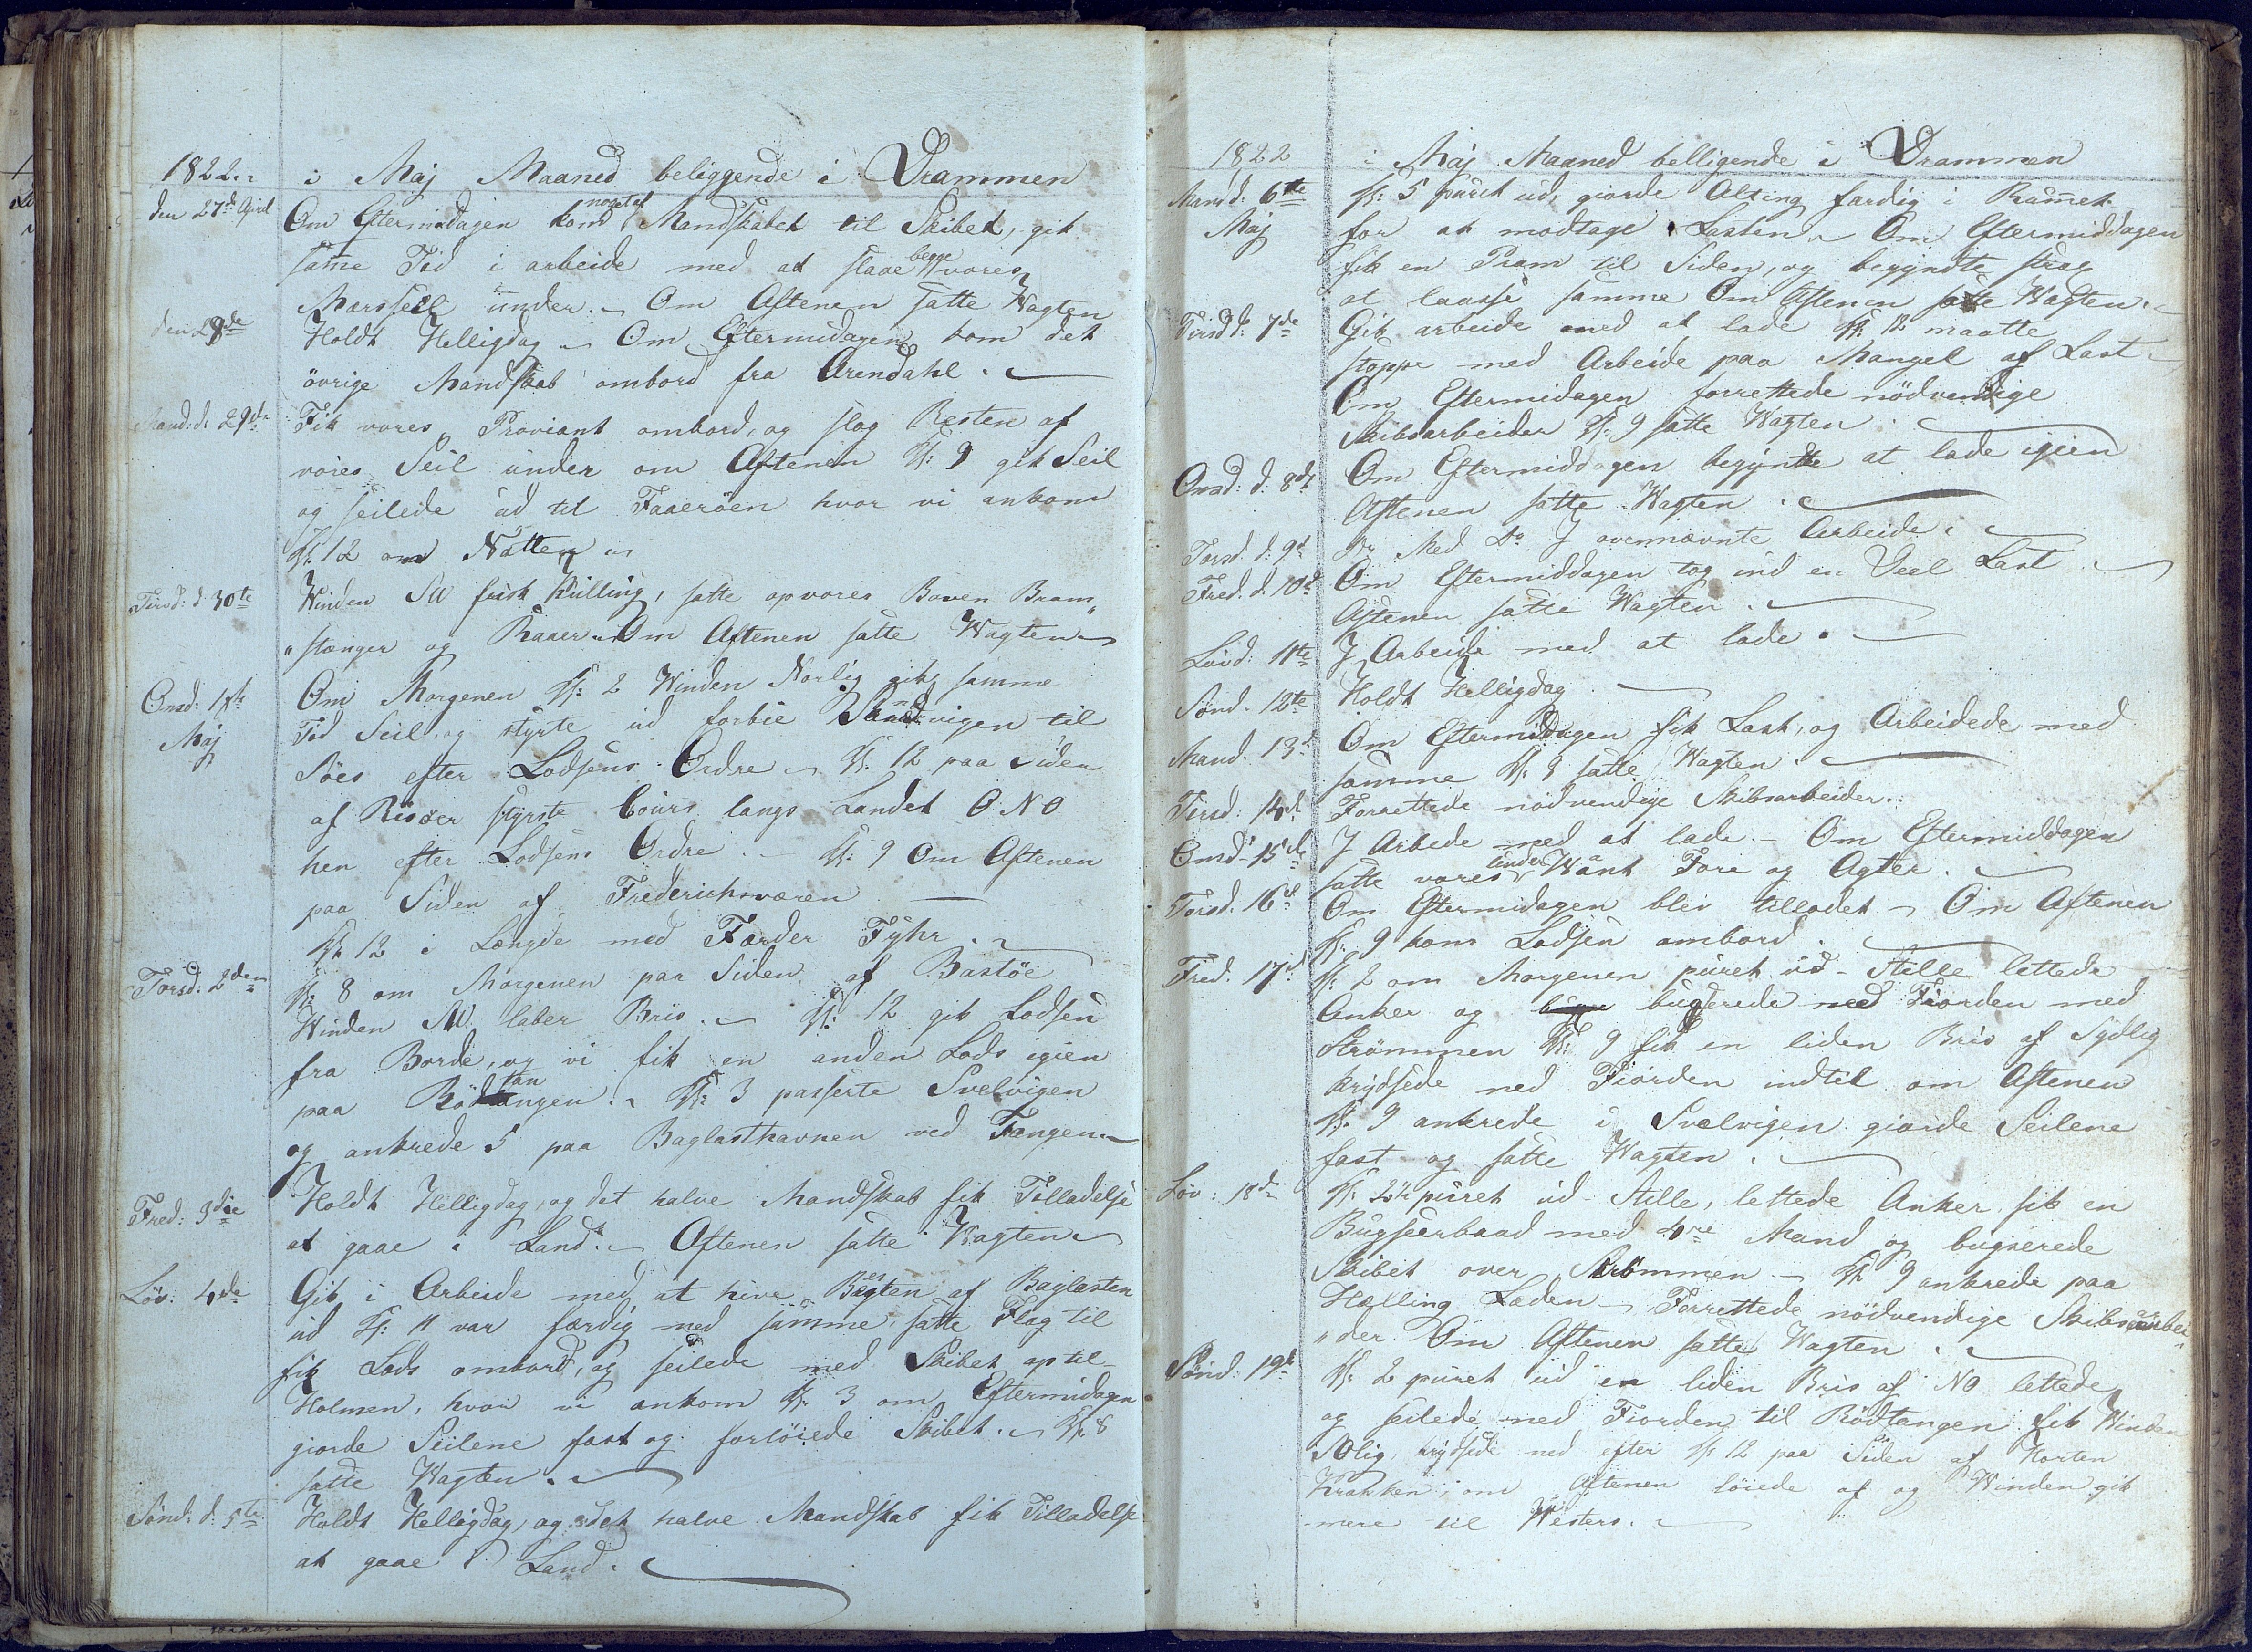 1822.
i Maj Maaned beliggende i Drammen
den 27de April
Om Eftermidagen kom noget af Mandskabet til Skibet, gik
samme Tid i arbeide med at slaae begge vores
Marsseil under. Om Aftenen satte Wagten
den 28de
Holdt Helligdag. Om Eftermidagen kom det
övrige Mandskab ombord fra Arendahl.
Mand: d: 29de
Fik vores Proviant ombord, og slog Resten af
vores Seil under om Aftenen Kl: 9 gik Seil
og seilede ud til Faaeröen hvor vi ankom
Kl. 12 om Natten
Tirsd: d: 30te
Winden SW frisk Kulling, satte op vores Boven Bram„
„stænger og Raaer. Om Aftenen satte Wagten
Onsd: 1ste
Maj
Om Morgenen Kl: 2 Winden Norlig gik samme
Tid Seil, og styrte ud forbie Sandvigen til
Söes efter Lodsens Ordre. Kl. 12 paa Siden
af Risöer styrste Cours langs Landet ONO
hen efter Lodsens Ordre. Kl: 9 Om Aftenen
paa Siden af Frederichsværen
Kl 12 i Længde med Færder Fyhr.
Torsd: 2den
Kl: 8 om Morgenen paa Siden af Bastöe
Winden SW. laber Bris. Kl: 12 gik Lodsen
fra Borde, og vi fik en anden Lods igien
paa Rödtangen. Kl: 3 passerte Svelvigen
og ankrede 5 paa Baglasthavnen ved Tangen
Fred: 3die
Holdt Helligdag, og det halve Mandskab fik Tilladelse
at gaae i Land. Aftenen satte Wagten
Löv. 4de
Gik i Arbeide med at hive Resten af Baglasten
ud Kl: 11 var færdig med samme, satte Flag til
fik Lods ombord, og seilede med Skibet op til
Holmen, hvor vi ankom Kl: 3 om Eftermidagen
giorde Seilene fast og fortöiede Skibet. Kl: 8
satte Wagten.
Sönd: d: 5te
Holdt Helligdag, og det halve Mandskab fik Tilladelse
at gaae i Land.
1822
i Maj Maaned belligende i Drammen
Mand: 6te
Maj
Kl: 5 puret ud, giorde Alting færdig i Rummet
for at modtage Lasten. Om Eftermiddagen
fik en Pram til Siden, og begyndte strax
at laasse samme Om Aftenen satte Wagten.
Tirsd d: 7de
Gik arbeide med at lade Kl: 12 maatte
stoppe med Arbeide paa Mangel af Last
Om Eftermidagen forrettede nödvendige
Skibsarbeider Kl: 9 satte Wagten.
Onsd: d: 8de
Om Eftermiddagen begyndte at lade igien
Aftenen satte Wagten.
Torsd. d: 9d
Med Do I ovennævnte Arbeide.
Fred. d. 10d
Om Eftermiddagen tog ind en Deel Last
Aftenen satte Wagten.
Lövd: 11te
I Arbeide med at lade.
Sönd. 12te
Holdt Helligdag
Mand. 13d
Om Eftermidagen fik Last, og Arbeidede med
samme Kl: 9 satte Wagten.
Tirsd. 14d.
Forrettede nödvendige Skibsarbeider.
Onsd. 15d
I Arbede med at lade - Om Eftermiddagen
satte vores under Want Fore og Agter.
Torsd. 16d
Om Eftermidagen blev tilladet - Om Aftenen
Kl: 9 kom Lodsen ombord.
Fred. 17d
Kl: 2 om Morgenen puret ud - Stille lettede
Anker og bugserede ned Fiorden med
Strömmen Kl: 9 fik en liden Bris af Sydlig
krydsede ned Fiorden indtil om Aftenen
Kl. 9 ankrede i Svelvigen giorde Seilene
fast og satte Wagten.
Löv: 18de
Kl: 2½ puret ud - Stille, lettede Anker fik en
Bugseerbaad med 4re Mand og bugserede
Skibet over Strömmen - Kl 9 ankrede paa
Hælling Laden - Forrettede nödvendige Skibsarbei„
„der Om Aftenen satte Wagten.
Sönd: 19d
Kl: 2 puret ud en liden Bris af NO lettede
og seilede ned Fiorden til Rödtangen fik Winden
SOlig, krydsede ned efter Kl 12 paa Siden af Horten
Krakken, om Aftenen löiede af og Winden gik
mere til Westers.